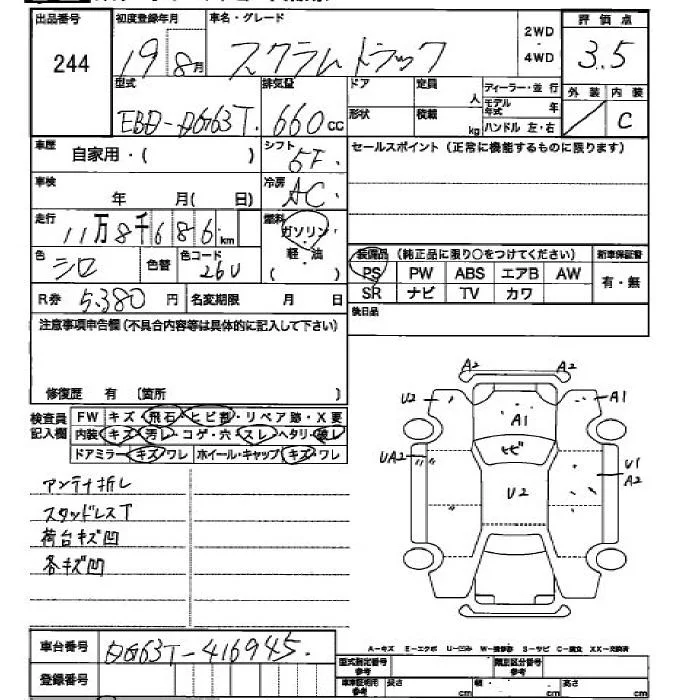 出品番号 初度登録年月 車名・グレード 評価点
244 19 8月 スクラムトラック 2WD・4WD 3.5
型式 排気量 ドア 定員 人 ディーラー・並行 外装 内装
EBD-DG63T. 660cc 形状 積載 kg モデル年式 年 C
ハンドル 左・右
車歴 自家用・( ) シフト 5F. セールスポイント(正常に機能するものに限ります)
車検 年 月( 日) 冷房 AC.
走行 11万8千686km 燃料 ガソリン・軽・油 ( )
色 シロ 色替 色コード 26U
装備品(純正品に限り○をつけてください) 新車保証書
PS PW ABS エアB AW 有・無
SR ナビ TV カワ
R券 5,380円 名変期限 月 日
後日品
注意事項申告欄(不具合内容等は具体的に記入して下さい)
修復歴 有 〔箇所 〕
検査員記入欄 FW キズ・飛石・ヒビ割・リペア跡・X要
内装 キズ・汚レ・コゲ・穴・スレ・ヘタリ・破レ
ドアミラー キズ・ワレ ホイール・キャップ キズ・ワレ
A2 A2
U2 A1 A1
ヒビ
UA2 U2 U1
A2
アンテナ折レ
スタッドレスT
荷台キズ凹
各キズ凹
車台番号 DG63T-416945.
登録番号
A-キズ E-エクボ U-凹ミ W-補修跡 S-サビ C-腐食 XX-交換済
型式指定番号 参考 類別区分番号 参考
車車証明用 参考 長さ cm 幅 cm 高さ cm